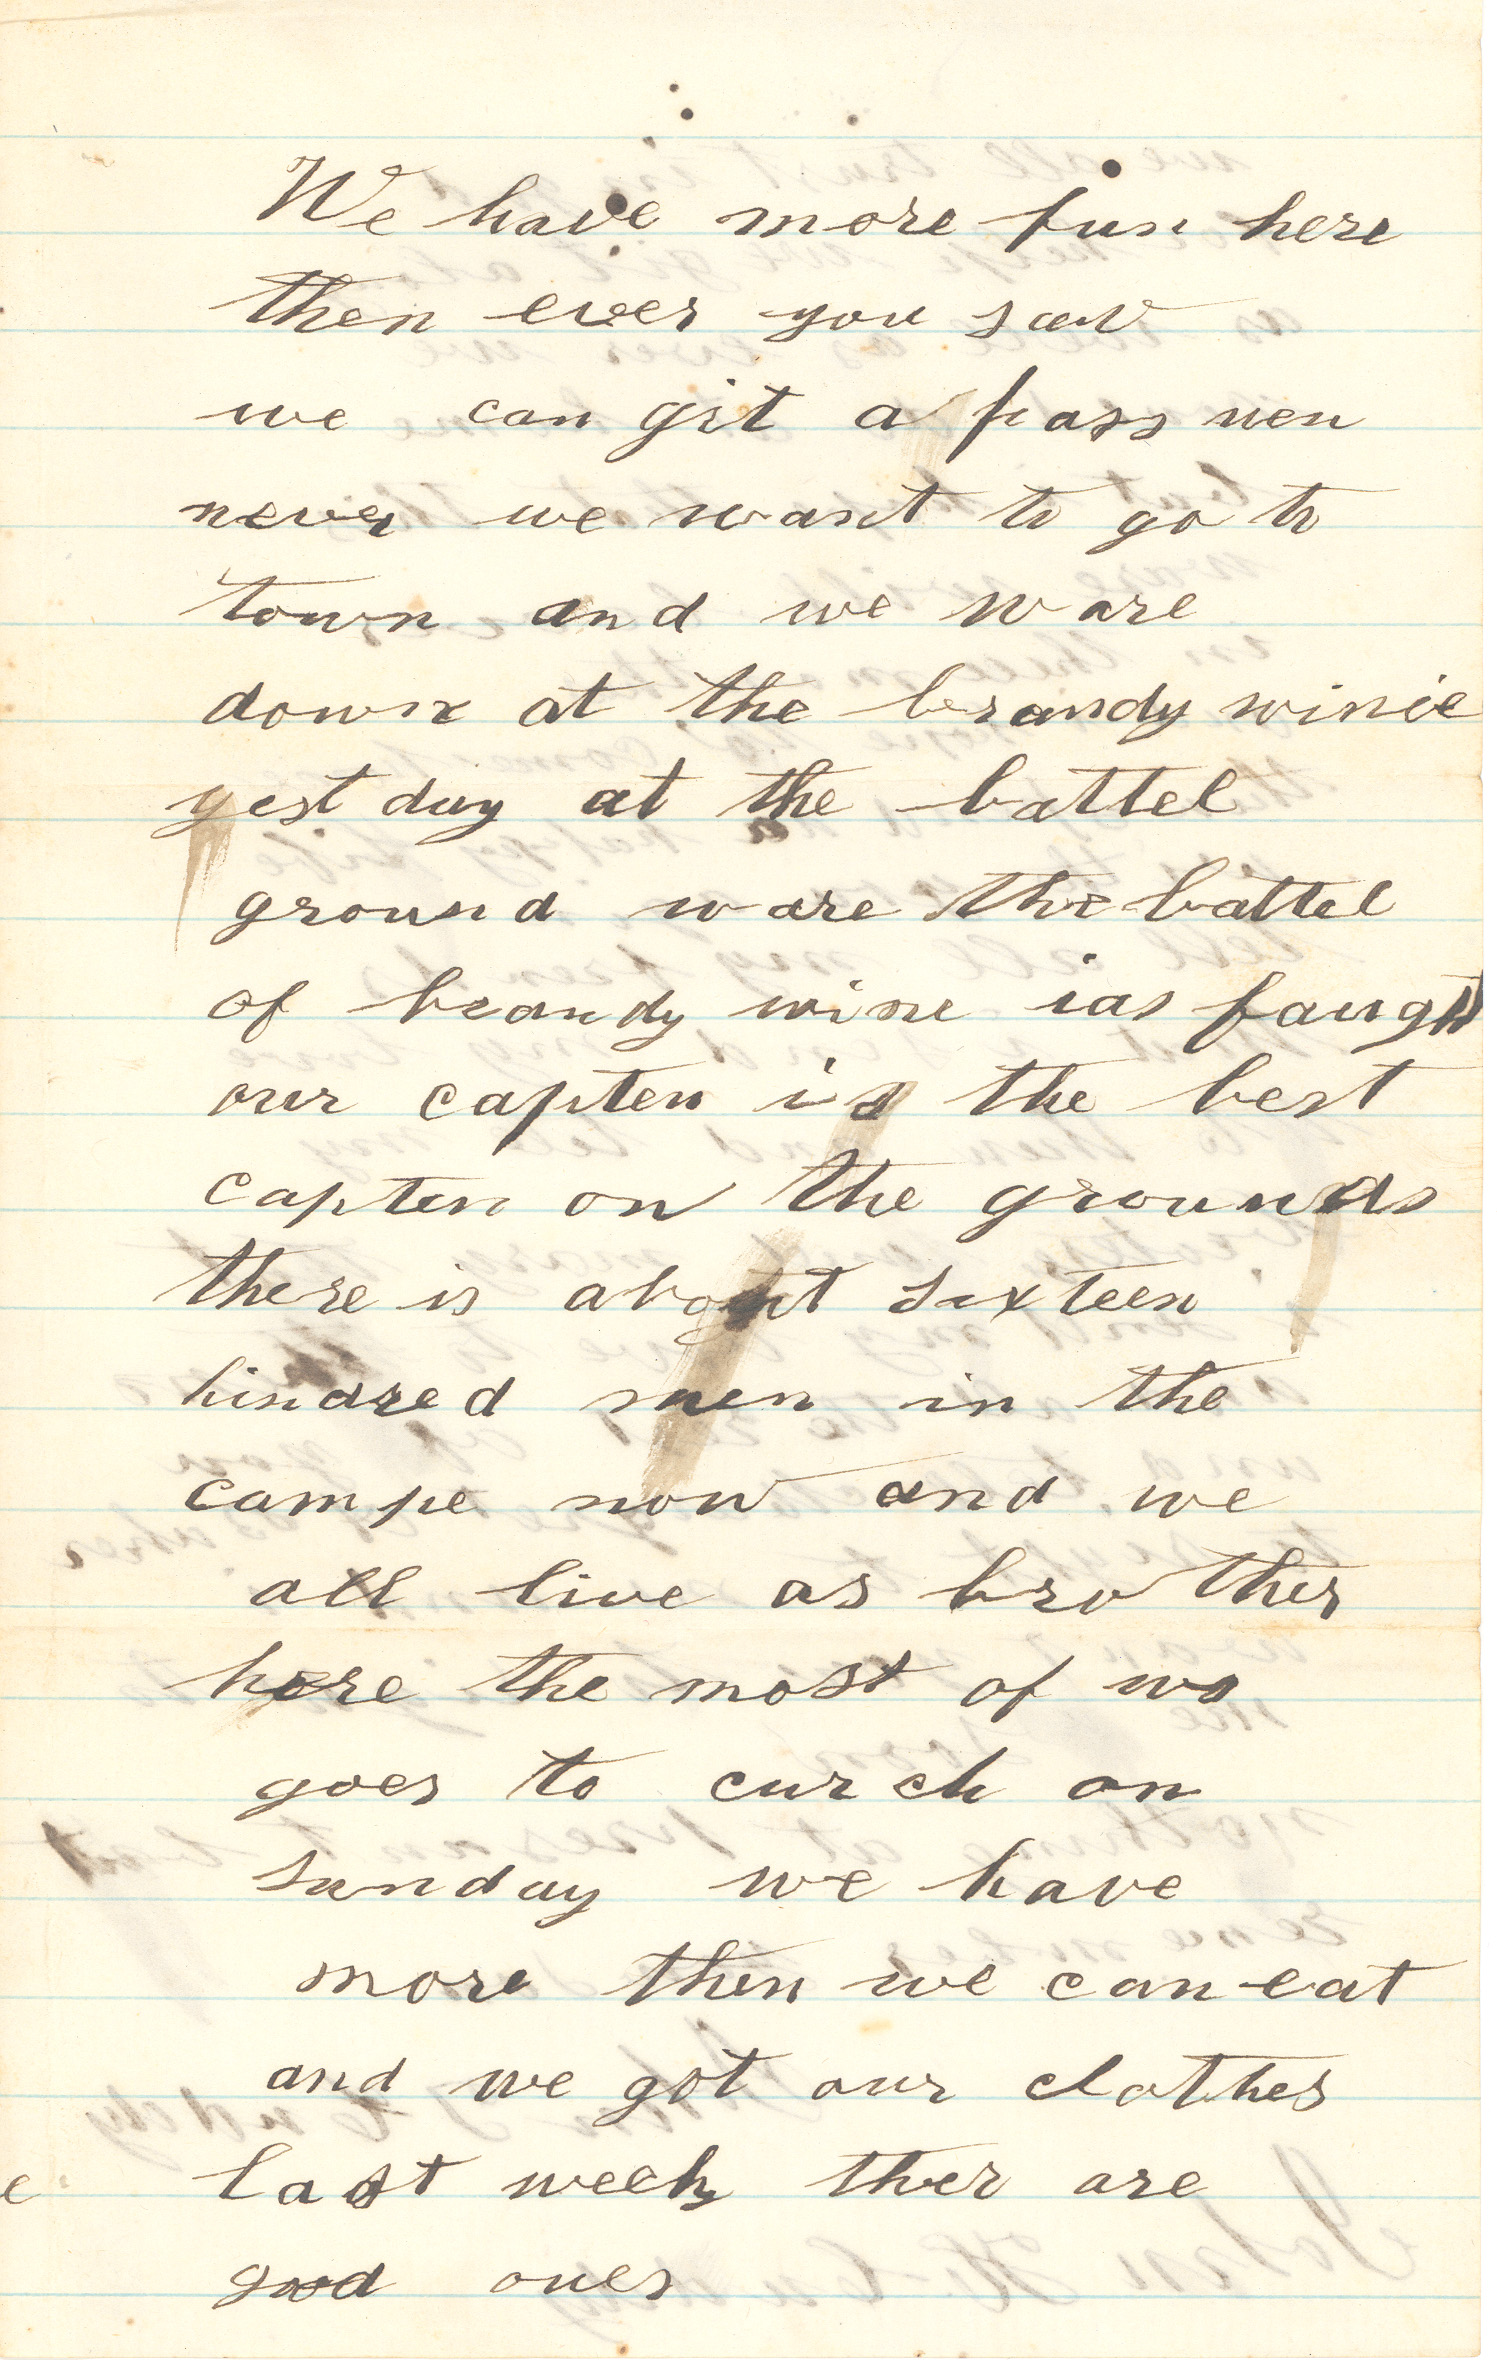 We have more fun here
then ever you saw
we can git a pass wen
never we want to go to
town and we ware
down at the brandy winie
yest day at the battel
ground ware the battel
of brandy wine ias faught
our capten is the best
capten on the grounds
there is about sixteen
hindred men in the
campe now and we
all live as brother
here the most of us
goes to curch on
sunday we have
more then we can eat
and we got our clothes
last week ther are
good ones